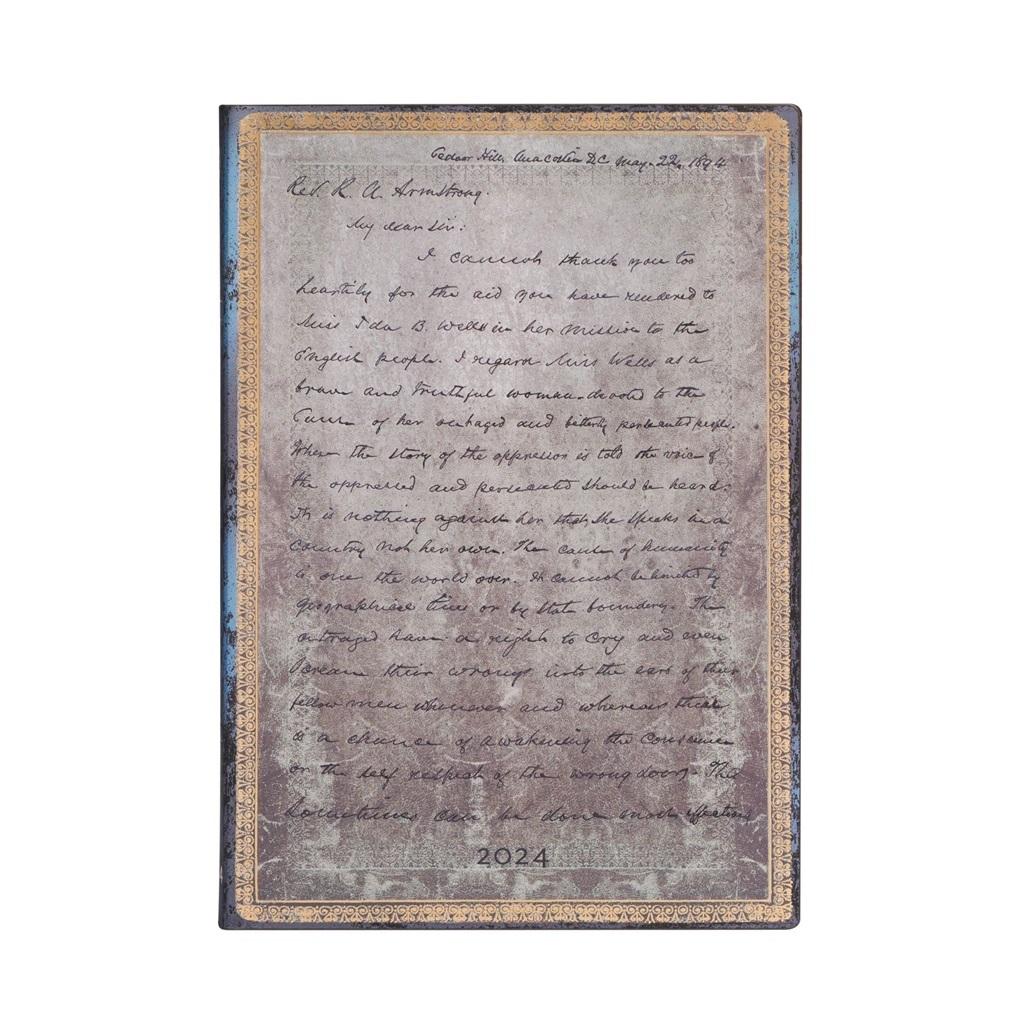 Cedar Hill, Anacostia D.C. May. 22, 1894
Rev. R. A. Armstrong.
My dear Sir:
I cannot thank you too
heartily for the aid you have rendered to
Miss Ida B. Wells in her mission to the
English people. I regard Miss Wells as a
brave and truthful woman devoted to the
Cause of her outraged and bitterly persecuted people.
When the story of the oppressor is told the voice of
the oppressed and persecuted should be heard.
It is nothing against her that she speaks in a
Country not her own. The cause of humanity
is one the world over. It cannot be limited by
geographical lines or by state boundary. The
outraged have a right to cry and even
scream their wrongs into the ears of their
fellow men whenever and wherever there
is a chance of awakening the conscience
or the self respect of the wrong doers. This
Sometimes can be done most
2024